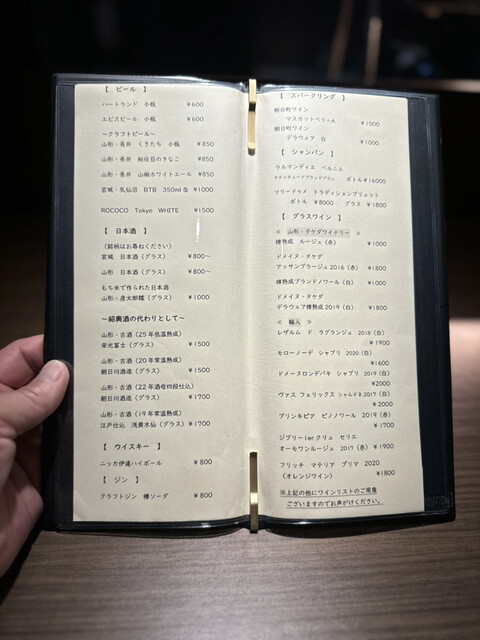 【 ビール 】
ハートランド 小瓶 ¥600
エビスビール 小瓶 ¥600
～クラフトビール～
山形・長井 くきたち 小瓶 ¥850
山形・長井 秘伝豆のきなこ ¥850
山形・長井 山椒ホワイトエール ¥850
宮城・気仙沼 BTB 350ml缶 ¥1000
ROCOCO Tokyo WHITE ¥1500
【 日本酒 】
(銘柄はお尋ねください)
宮城 日本酒(グラス) ¥800～
山形 日本酒(グラス) ¥800～
もち米で作られた日本酒
山形:彦太郎糯(グラス) ¥1000
～紹興酒の代わりとして～
山形・古酒(25年低温熟成)
栄光冨士(グラス) ¥1500
山形・古酒(20年常温熟成)
朝日川酒造(グラス) ¥1500
山形・古酒(22年酒母四段仕込)
朝日川酒造(グラス) ¥1700
山形・古酒(19年常温熟成)
江戸仕込 浅黄水仙(グラス) ¥1700
【 ウイスキー 】
ニッカ伊達ハイボール ¥800
【 ジン 】
クラフトジン 樽ソーダ ¥800
【 スパークリング 】
朝日町ワイン
マスカットベリーA ¥1000
朝日町ワイン
デラウェア 白 ¥1000
【 シャンパン 】
ラルマンディエ ベルニエ
ボトル ¥16000
マリードゥメ トラディションブリュット
ボトル ¥8000 グラス ¥1800
【 グラスワイン 】
≪ 山形・タケダワイナリー ≫
樽熟成 ルージュ(赤) ¥1000
ドメイヌ・タケダ
アッサンブラージュ2016(赤) ¥1800
樽熟成ブランドノワール(白) ¥1000
ドメイヌ・タケダ
デラウェア樽熟成2019(白) ¥1800
≪ 輸入 ≫
レザルム ド ラグランジュ 2018(白)
¥1900
モローノーデ シャブリ 2020(白)
¥1600
ドメーヌロンデパキ シャブリ 2019(白)
¥2000
ヴァス フェリックス シャルドネ2017(白)
¥2000
プリンキピア ピノノワール 2019(赤)
¥1700
ジブリー1erクリュ セリエ
オーモワンルージュ 2017(赤) ¥1900
フリッチ マテリア プリマ 2020
(オレンジワイン) ¥1800
※上記の他にワインリストのご用意
ございますのでお声がけください。